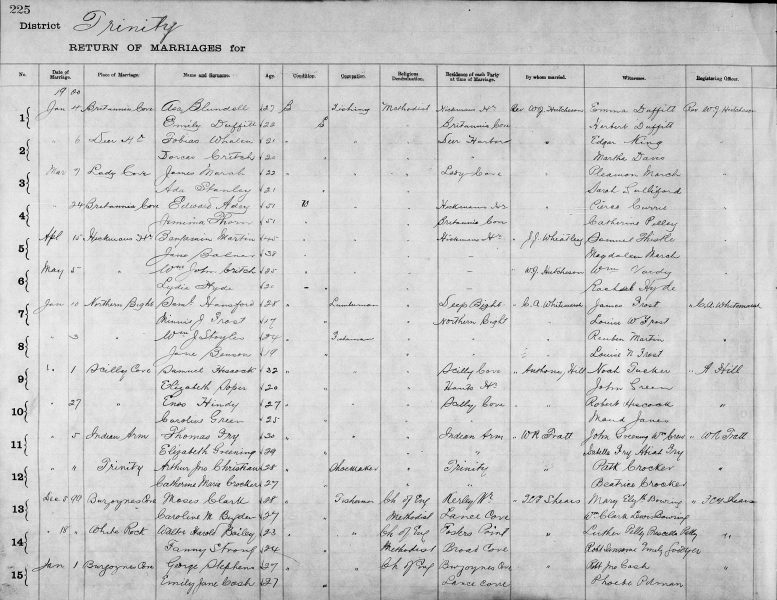 225
District Trinity
RETURN OF MARRIAGES for
No. Date of Marriage. Place of Marriage. Name and Surname. Age. Condition. Occupation. Religious Denomination. Residence of each Party at time of Marriage. By whom married. Witnesses. Registering Officer.
1900
1 Jan 4 Britannia Cove Asa Blundell 27 B Fishing Methodist Hickmans Hr Rev W J Hutcheson Emma Duffitt Rev W J Hutcheson
Emily Duffitt 22 Britannia Cove Herbert Duffitt
2 " 6 Deer Hr Tobias Whalen 21 " " Deer Harbor " Edgar King "
Dorcas Critch 20 " Martha Davis
3 Mar 7 Lady Cove James March 22 " " Lady Cove " Eleanor March "
Ada Stanley 21 " Sarah
4 " 24 Britannia Cove Edward Adey 51 W " " Hickmans Hr " Pierce Currie "
Jemima Thorn 51 Britannia Cove Catherine Pelley
5 Apl 15 Hickmans Hr Benjamin Martin 45 " " Hickmans Hr " J J Wheatley Samuel Thistle "
Jane 38 Magdalen March
6 May 5 " Wm John Critch 25 " " " W J Hutcheson Wm Vardy "
Lydia Hyde 20 Rachel Hyde
7 Jan 10 Northern Bight Saml Hansford 28 " Lumberman " Deep Bight " C. A. Whitemarsh James Frost " C. A. Whitemarsh
Minnie J Frost 17 Northern Bight Louisa W Frost
8 " 3 " Wm J Stoyles 24 " Fisherman " " " Reuben Martin "
Jane Benson 19 Louisa N Frost
9 " 1 Scilly Cove Samuel Hiscock 32 " " " Scilly Cove " Anthony Hill Noah Tucker " A Hill
Elizabeth Soper 20 Hants Hr John Green
10 " 27 " Enos Hindy 27 " " " Scilly Cove " Robert Hiscock "
Caroline Green 25 " Maud Janes
11 " 5 Indian Arm Thomas Fry 30 " " " Indian Arm " W R Tratt John Greening Wm Cross " W R Tratt
Elizabeth Greening 29 " Fry Fry
12 " " Trinity Arthur Jno Christian 28 " Shoemaker " Trinity " Patk Crocker "
Catherine Maria Crocker 27 " Beatrice Crocker
13 Dec 8 99 Burgoynes Cove Moses Clark 28 " Fisherman Ch of Eng Kerley Hr " T C R Shears Mary Elizth Bowring " Shears
Caroline M Bugden 27 Methodist Lance Cove Wm Clark Lewis Bowring
14 " 18 " White Rock Walter Harold Bailey 23 " " Ch of Eng Fosters Point " Luther Pelly Priscilla Pelly "
Fanny Strong 24 Methodist Broad Cove Robt Emily
15 Jan 1 Burgoynes Cove George Stephens 27 " " Ch of Eng Burgoynes Cove " Robt Jno Cash "
Emily Jane Cash 27 Lance Cove Phoebe Pitman